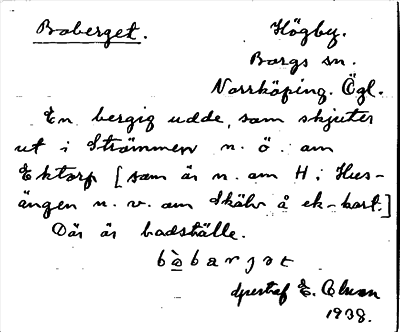 Boberget. Högby.
Borgs sn.
Norrköping. Ögl.
En bergig udde, som skjuter
ut i Strömmen n. ö. om
Ektorp [som är n. om H i Hus-
ängen n. v. om Skälv å ek-kart.]
Där är badställe.
E. Olson
1938.